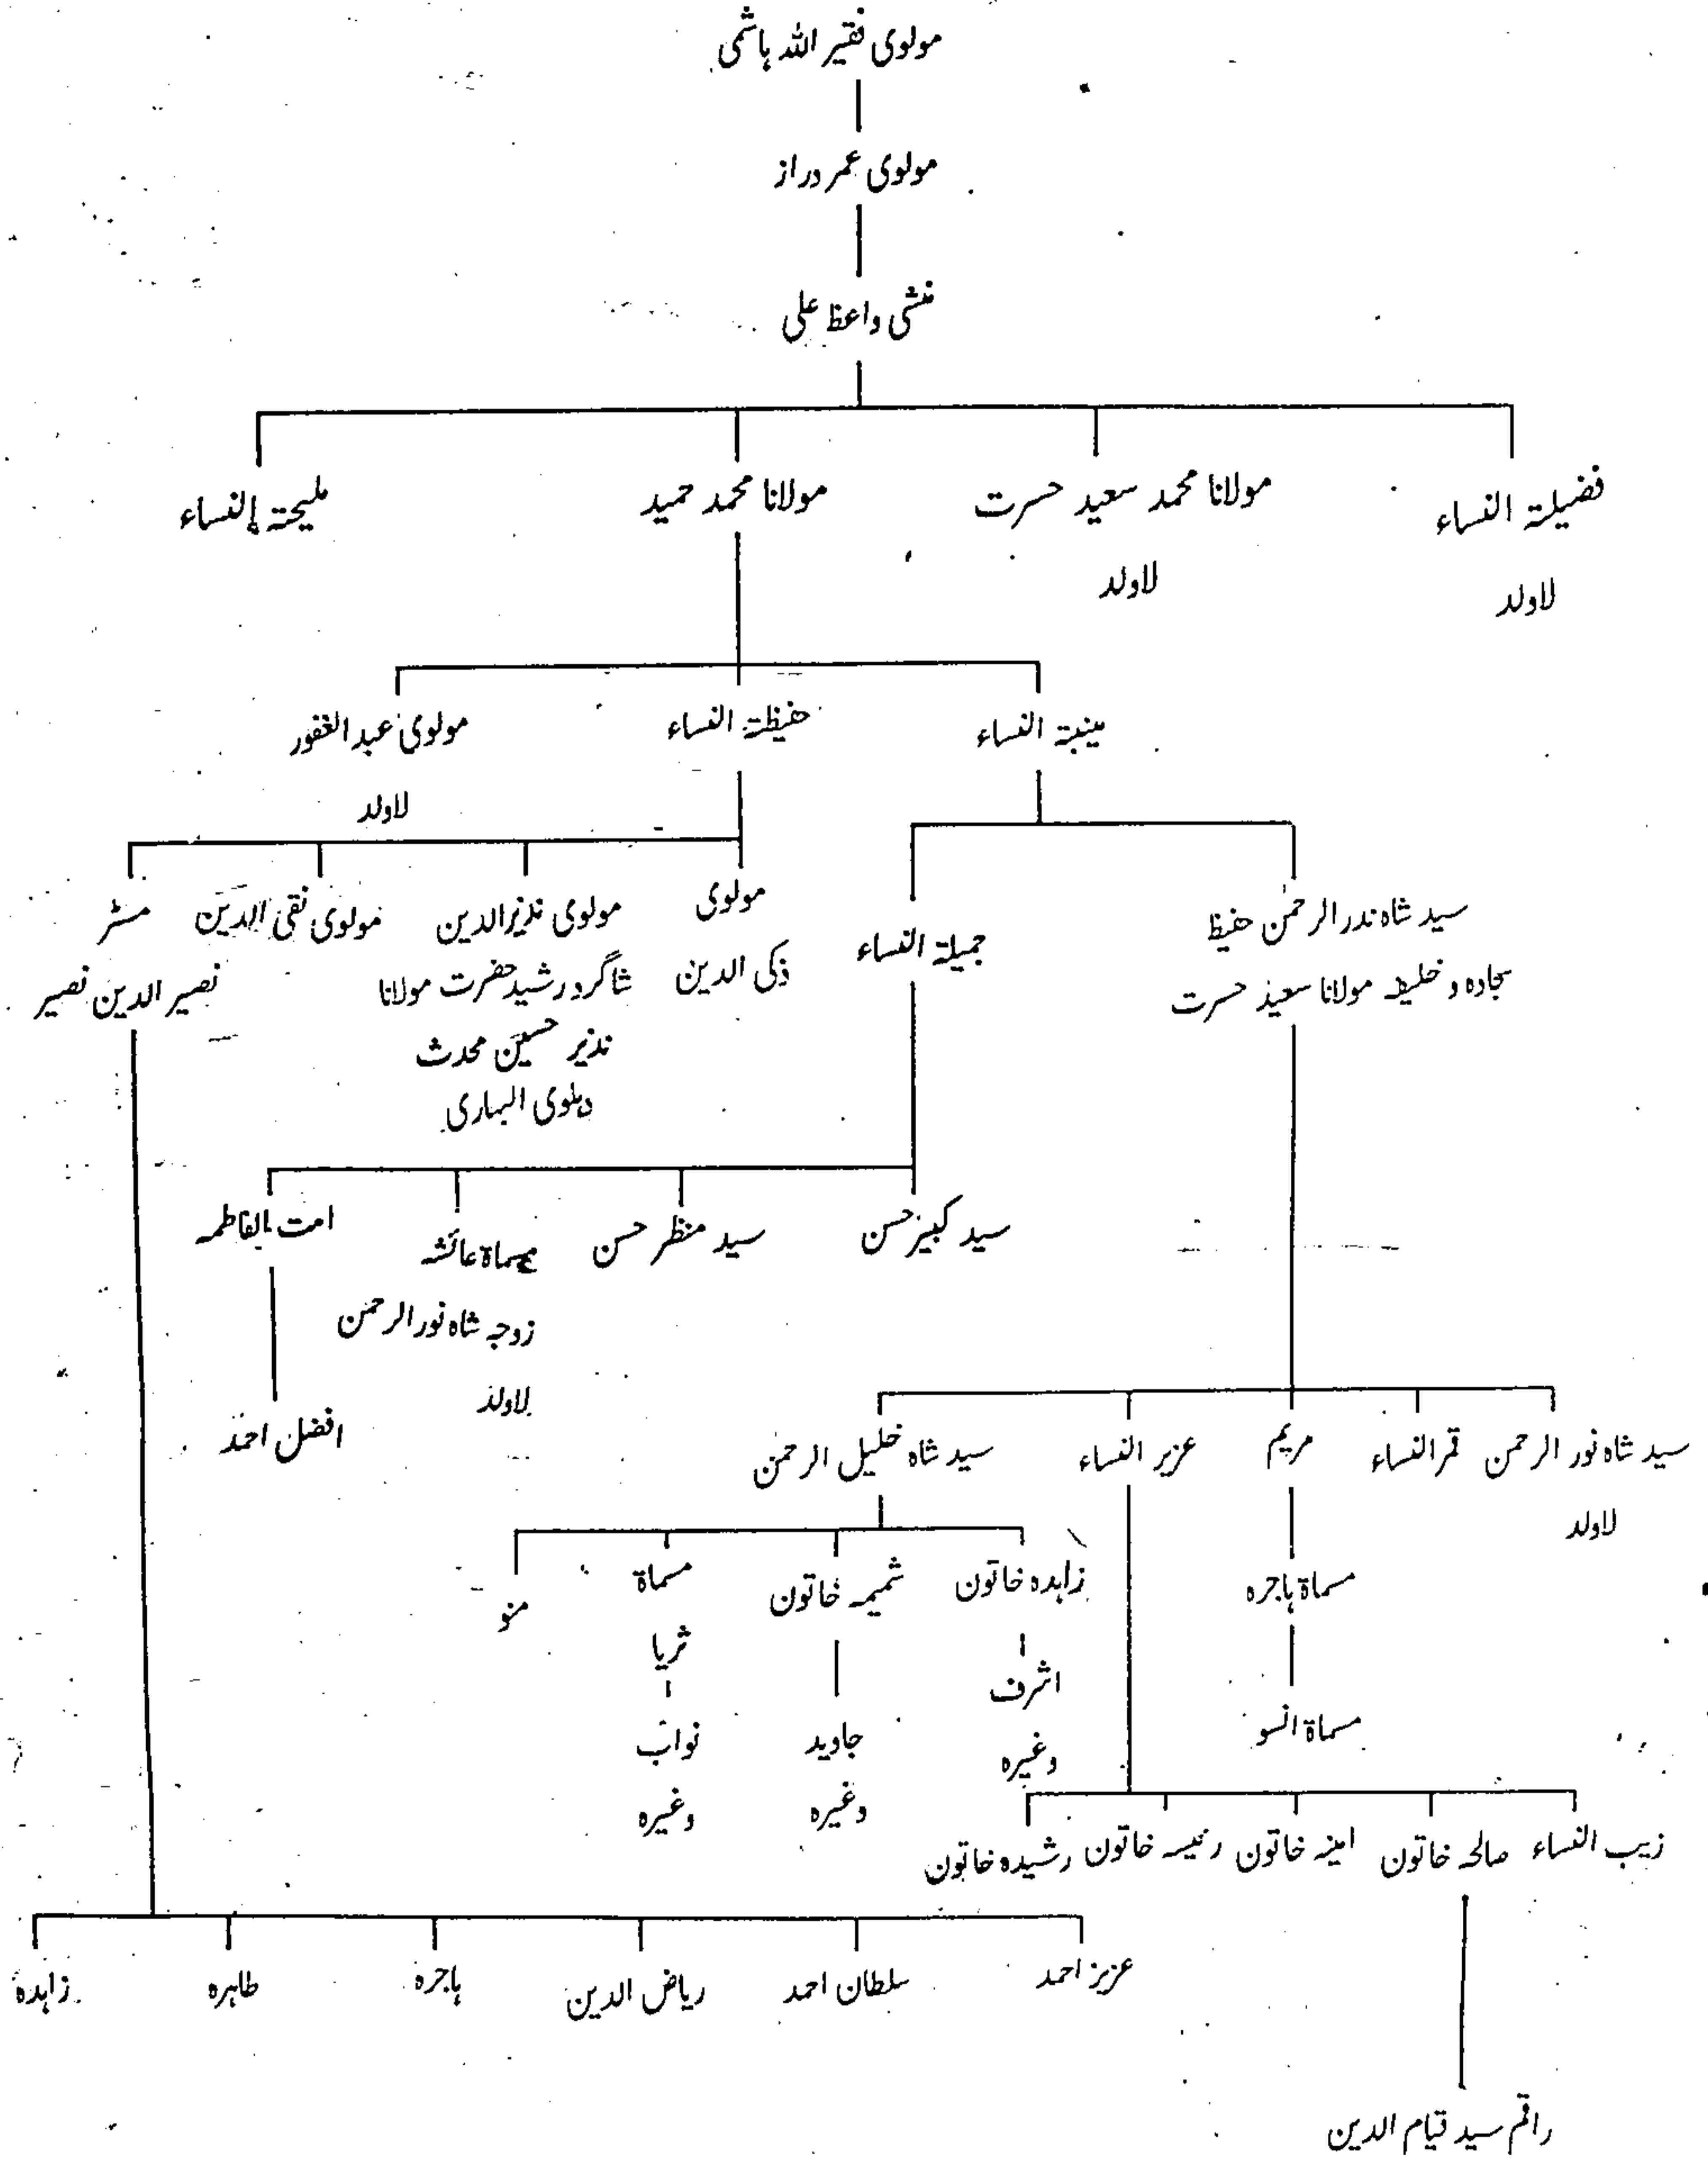 مولوی فقیر اللہ ہاشمی
مولوی عمر دراز
منشی واعظ علی
فضیلۃ النساء
لاولد
مولانا محمد سعید حسرت
لاولد
مولانا محمد حمید
ملیحتہ النساء
مینبۃ النساء
حفیظۃ النساء
مولوی عبد الغفور
لاولد
سید شاہ نذر الرحمٰن حفیظ
سجادہ و خلیفہ مولانا سعید حسرت
جمیلۃ النساء
مولوی
ذکی الدین
مولوی نذیر الدین
شاگرد رشید حضرت مولانا
نذیر حسین محدث
دہلوی البہاری
مولوی نقی الدین
مسٹر
نصیر الدین نصیر
سید کبیر حسن
سید منظر حسن
مسماۃ عائشہ
زوجہ شاہ نور الرحمٰن
لاولد
امت الفاطمہ
افضل احمد
سید شاہ نور الرحمن
لاولد
قمر النساء
مریم
عزیر النساء
سید شاہ خلیل الرحمن
مسماۃ ہاجرہ
مسماۃ انسو
زاہدہ خاتون
اشرف
وغیرہ
شمیمہ خاتون
جاوید
وغیرہ
مسماۃ
ثریا
نواب
وغیرہ
منو
زیب النساء
صالحہ خاتون
امینہ خاتون
رئیسہ خاتون
رشیدہ خاتون
عزیز احمد
سلطان احمد
ریاض الدین
ہاجرہ
طاہرہ
زاہدہ
راقم سید قیام الدین